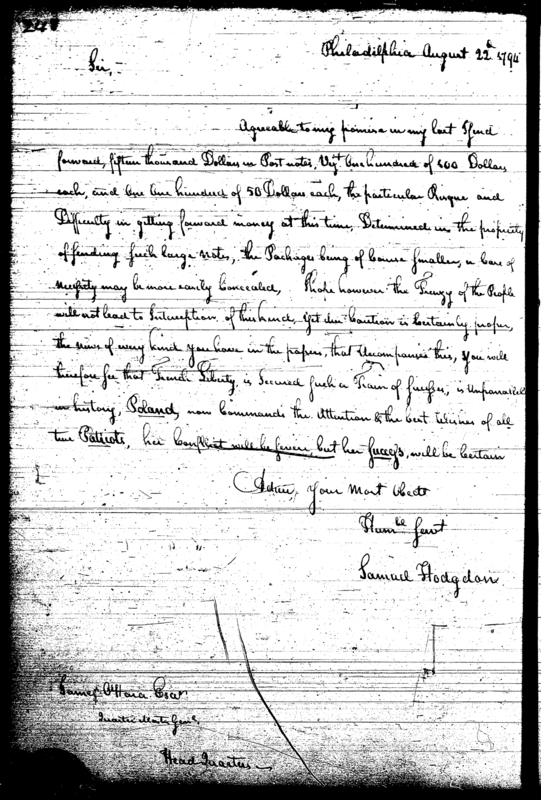 248
Philadelphia August 22d 1794
Sir,
Agreeable to my promise in my last I send
forward, fifteen thousand Dollars in Post notes, Vizt One hundred of 100 Dollars
each, and One One hundred of 50 Dollars each, the particular Risque and
Difficulty in getting forward money at this time, Determined in the propriety
of sending such large notes, the Packages being of Course Smaller, in Case of
necessity may be more easily Concealed, I hope however the Frenzy of the People
will not lead to Interception of this kind, yet due Caution is Certainly proper,
the news of every kind you have in the papers, that accompanies this, you will
therefore see that French Liberty, is Secured such a Train of Success, is Unparalled
in history, Poland, now Commands the Attention & the best Wishes of all
true Patriots, her Conflict will be severe, but her Success, will be Certain
Adieu, your Most Obedt
Humble Servt
Samuel Hodgdon
James O'Hara Esqr
Quarter Master Genl
Head Quarters